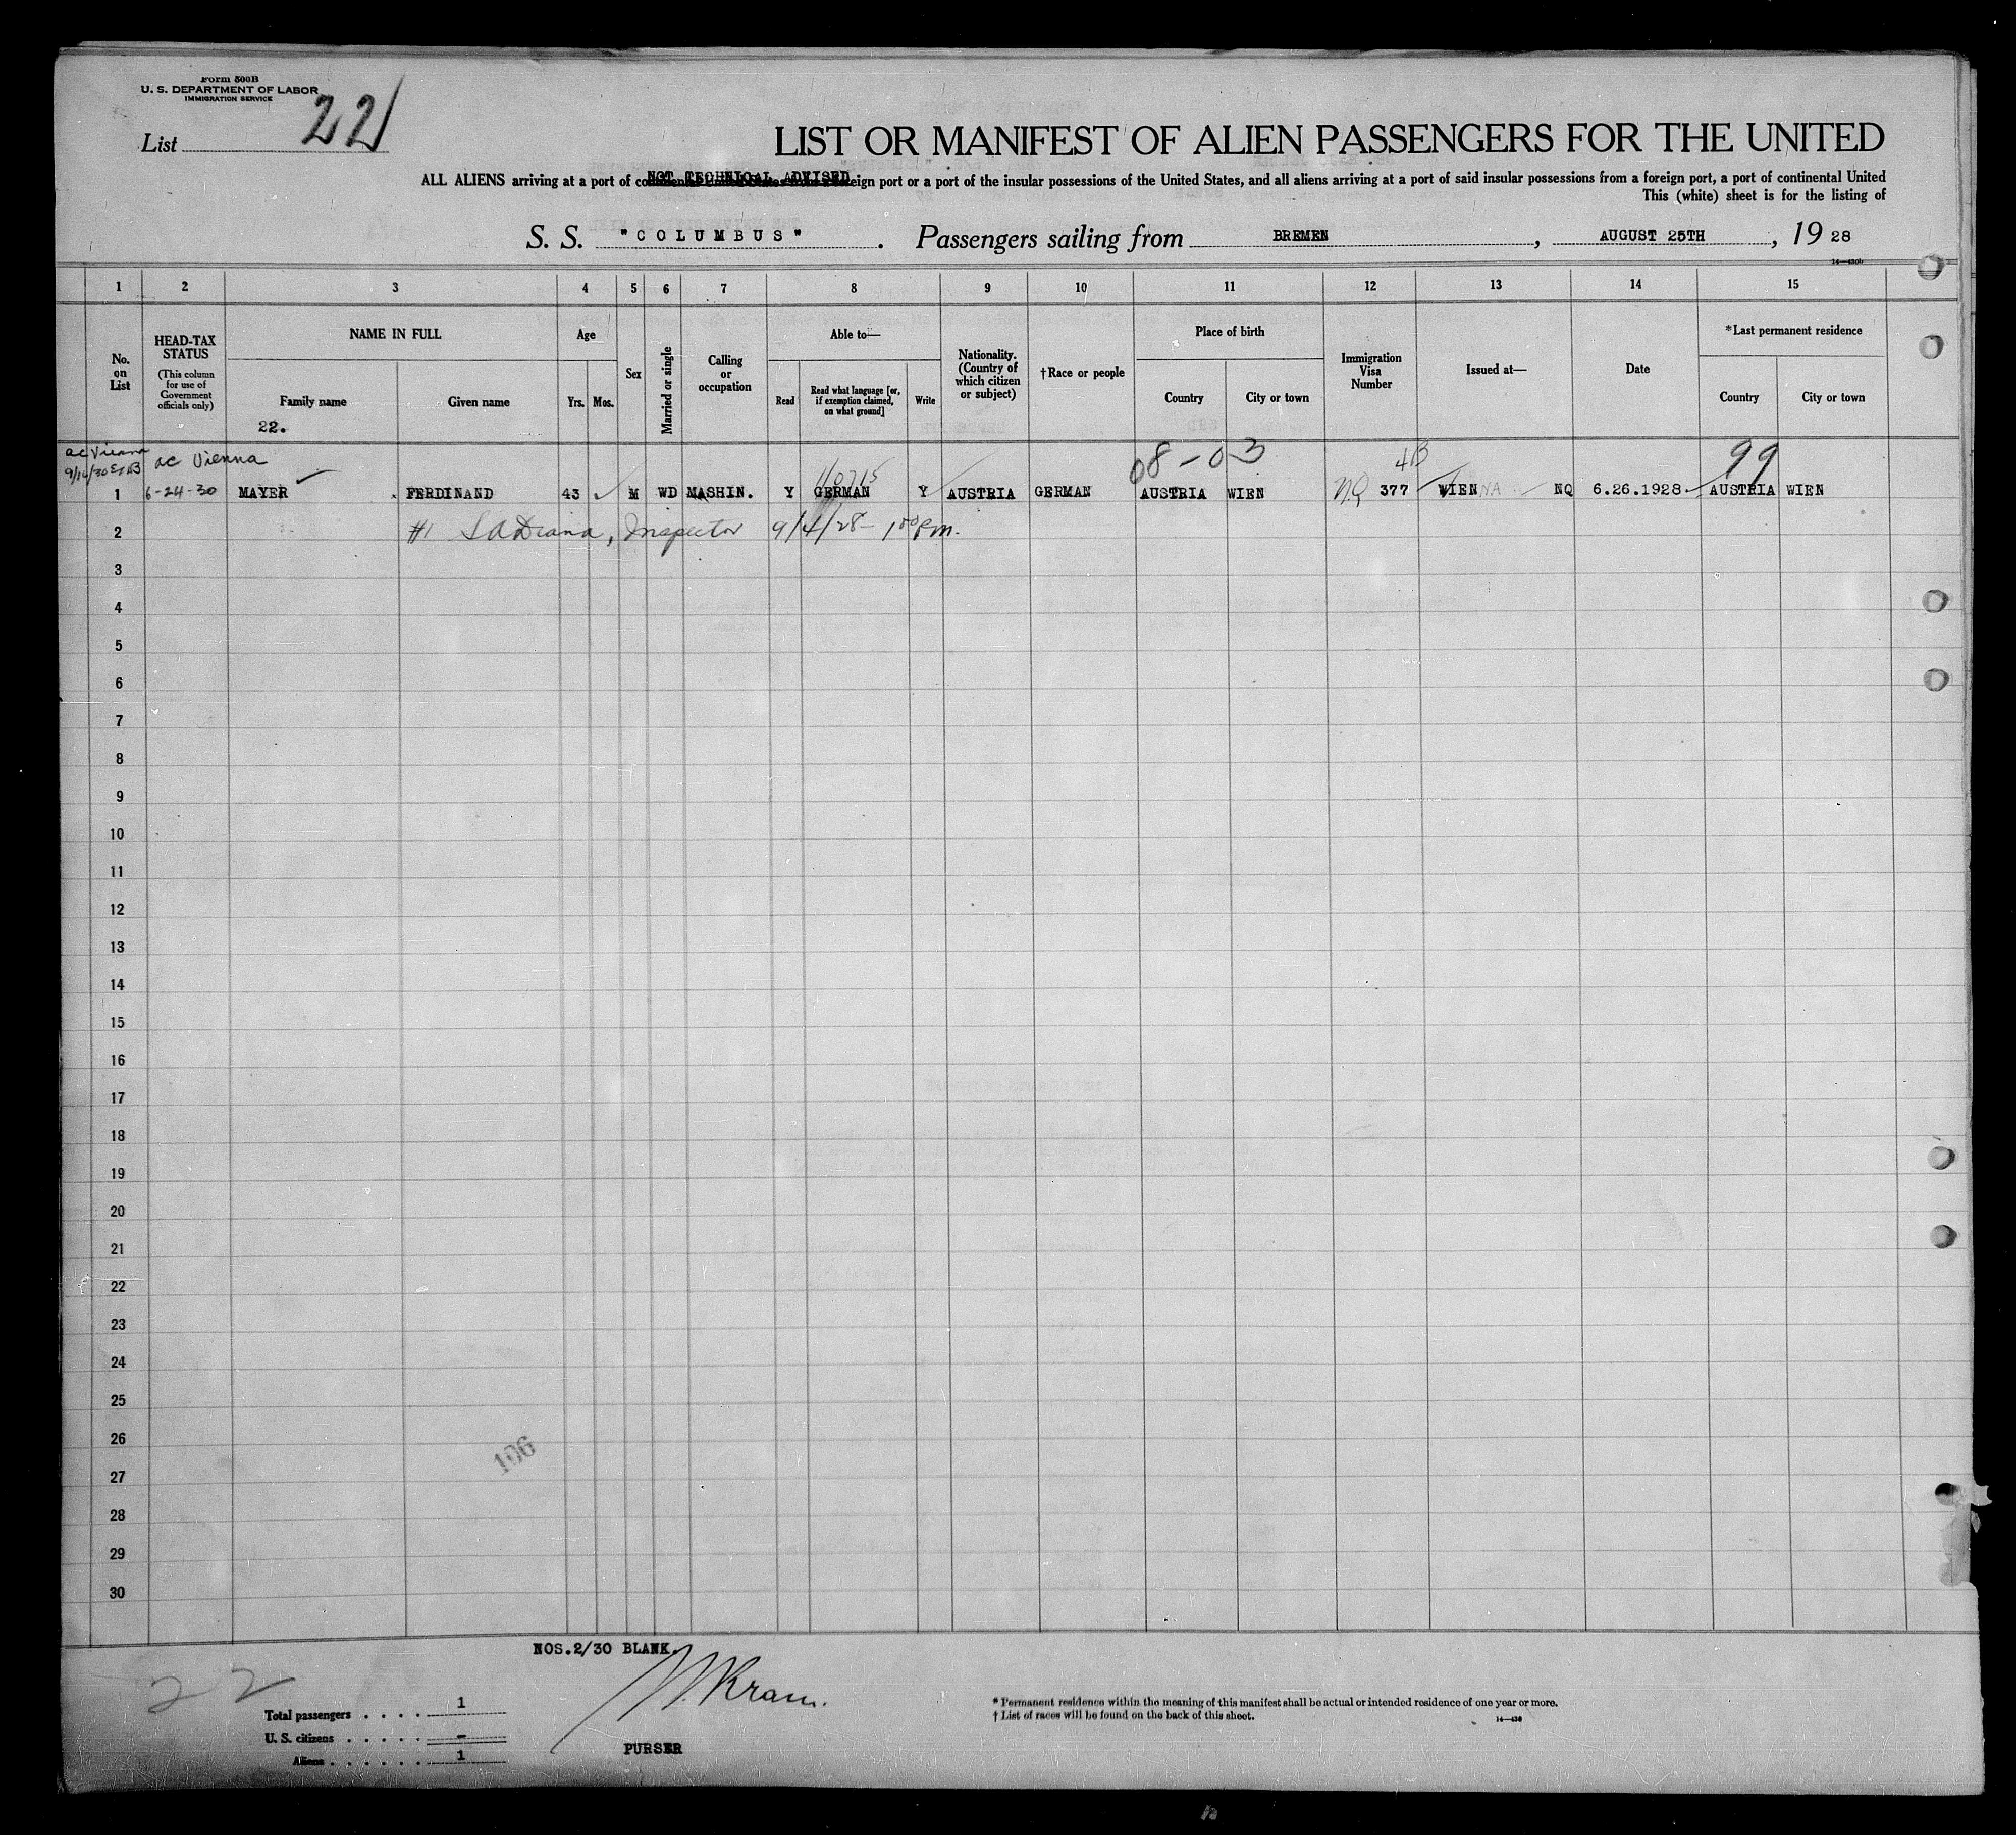 Form 500B
U. S. DEPARTMENT OF LABOR
IMMIGRATION SERVICE
List 22
LIST OR MANIFEST OF ALIEN PASSENGERS FOR THE UNITED
NOT TECHNICAL ADVISED
ALL ALIENS arriving at a port of continental United States from a foreign port or a port of the insular possessions of the United States, and all aliens arriving at a port of said insular possessions from a foreign port, a port of continental United
This (white) sheet is for the listing of
S. S. "COLUMBUS". Passengers sailing from BREMEN, AUGUST 25TH, 19 28
1 2 3 4 5 6 7 8 9 10 11 12 13 14 15
No. on List
HEAD-TAX STATUS (This column for use of Government officials only)
NAME IN FULL
Family name
Given name
22.
Age
Yrs. Mos.
Sex
Married or single
Calling or occupation
Able to—
Read
Read what language [or, if exemption claimed, on what ground]
Write
Nationality. (Country of which citizen or subject)
†Race or people
Place of birth
Country
City or town
Immigration Visa Number
Issued at—
Date
*Last permanent residence
Country
City or town
ac Vienna
ac Vienna
08-03
99
1 6-24-30 MAYER FERDINAND 43 M WD MASHIN. Y GERMAN Y AUSTRIA GERMAN AUSTRIA WIEN NQ 377 WIEN NQ 6.26.1928 AUSTRIA WIEN
2 #1 Inspector 9/4/28
3
4
5
6
7
8
9
10
11
12
13
14
15
16
17
18
19
20
21
22
23
24
25
26
27
28
29
30
106
NOS.2/30 BLANK.
22
Total passengers . . . . 1
U. S. citizens . . . . . . -
Aliens . . . . . . . 1
PURSER
* Permanent residence within the meaning of this manifest shall be actual or intended residence of one year or more.
† List of races will be found on the back of this sheet.